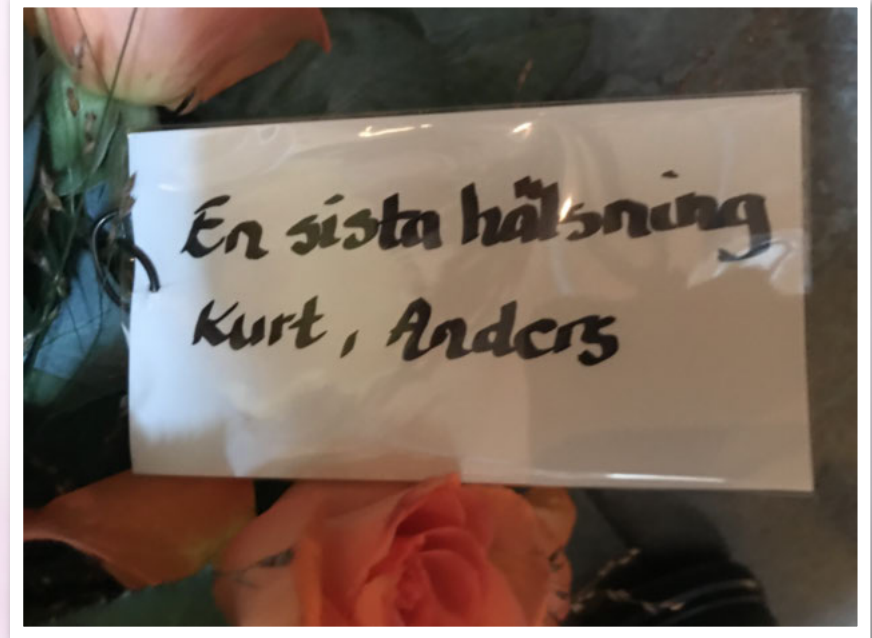 En sista hälsning
Kurt, Anders